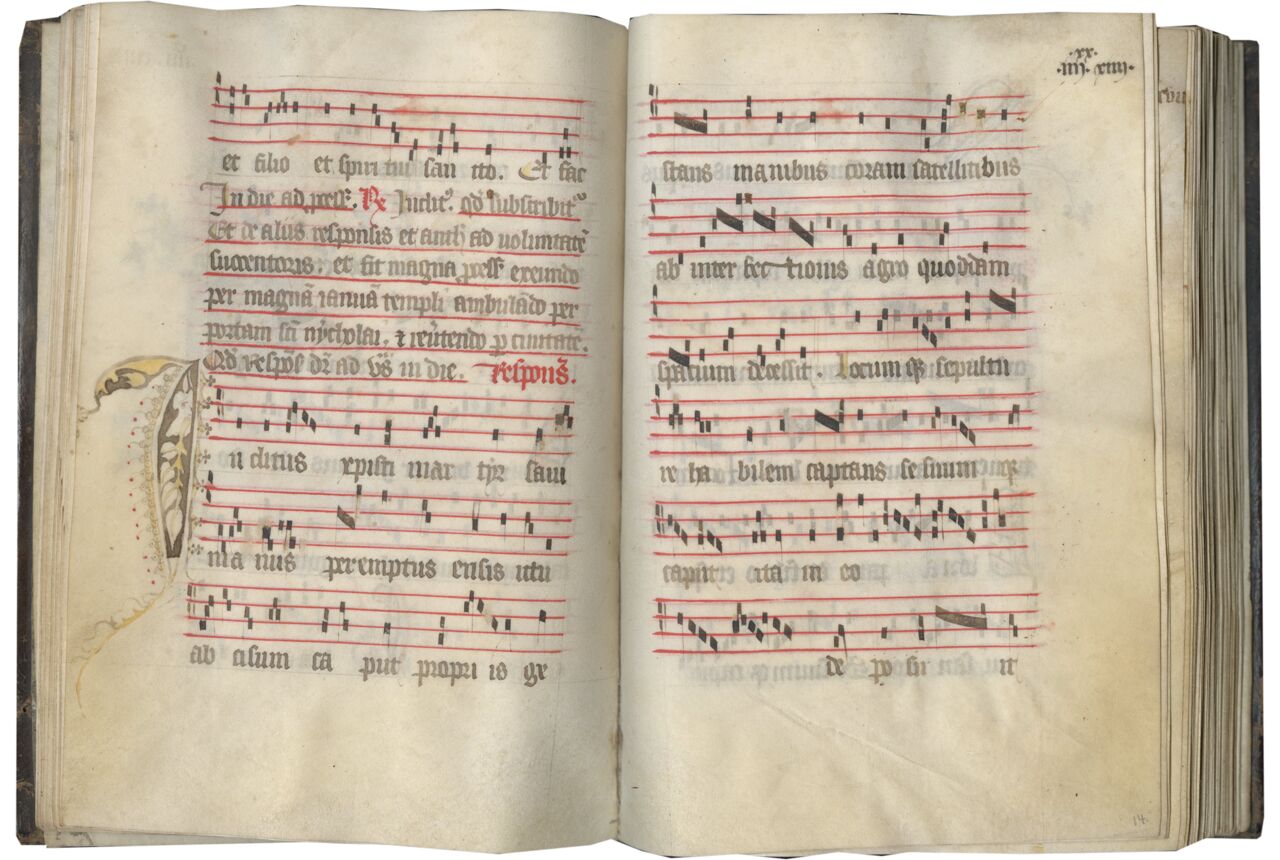 et filio et spiri tui san cto. Et sac
In die ad ꝓcess̃. ℟ Inclit⁹. qd̛ subscribit̛
Et de aliis responsis et antĥ ad voluntatẽ
succentoris. et fit magna ꝓcess̃ exeundo
per magnã ianuã templi ambulãdo per
portam sc̃i nycholai. ⁊ reũtendo ꝓ ciuitatẽ.
Qd̛ respõs̃ dr̃ ad vs̃ in die. respons̃.
I n clitus xpisti mar tyr saui
ma nus peremptus ensis ictu
ab cisum ca put propri is ge
·xx·
·iiij· xiiij·
stans manibus coram satellitibus
ab inter fec tionis agro quoddam
spatium decessit. Locum qȝ sepultu
re ha bilem captans se suum qȝ
caput ita in eo
de po su it
14